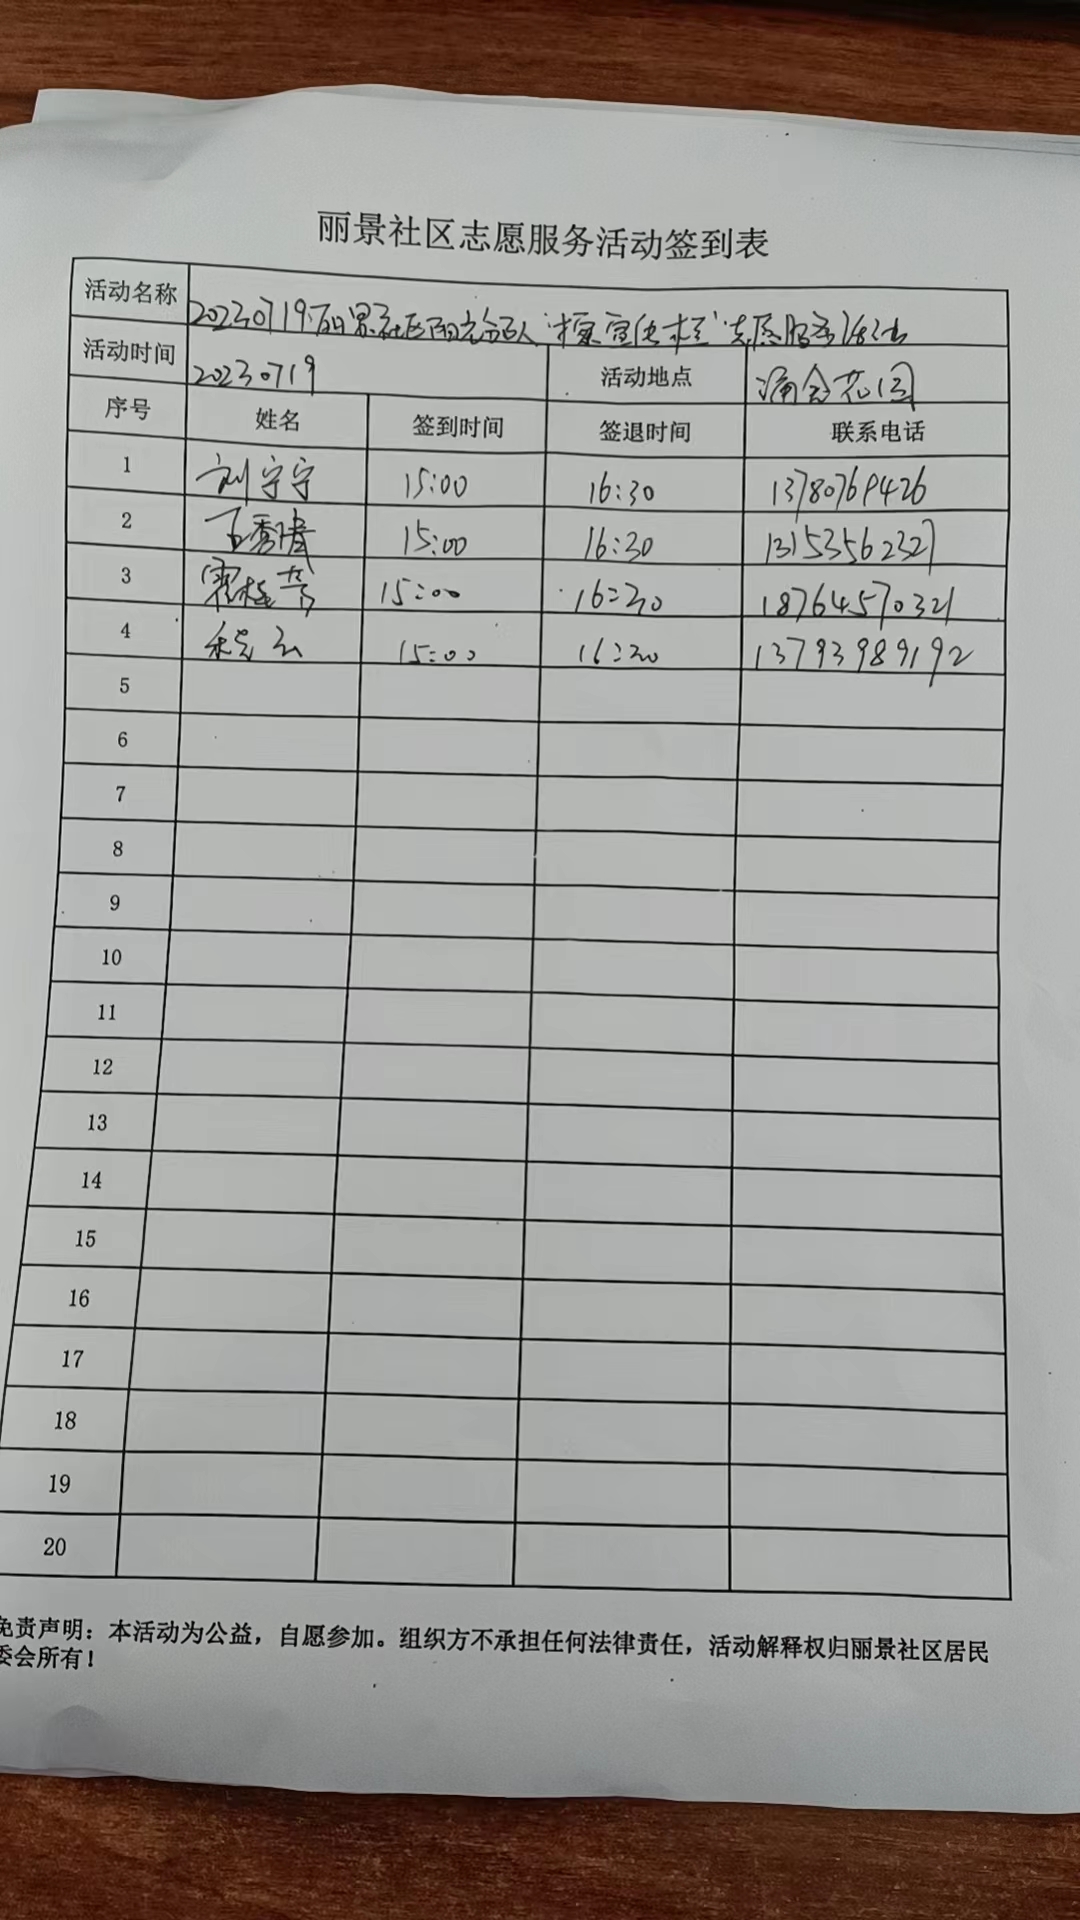 丽景社区志愿服务活动签到表
活动名称 20230719丽景社区阳光合伙人"擦宣传栏"志愿服务活动
活动时间 20230719 活动地点 涌金花园
序号 姓名 签到时间 签退时间 联系电话
1 刘宁宁 15:00 16:30 13780769426
2 王秀清 15:00 16:30 13153562327
3 15:00 16:30 18764570321
4 程云 15:00 16:30 13793989192
5
6
7
8
9
10
11
12
13
14
15
16
17
18
19
20
免责声明：本活动为公益，自愿参加。组织方不承担任何法律责任，活动解释权归丽景社区居民
委会所有！